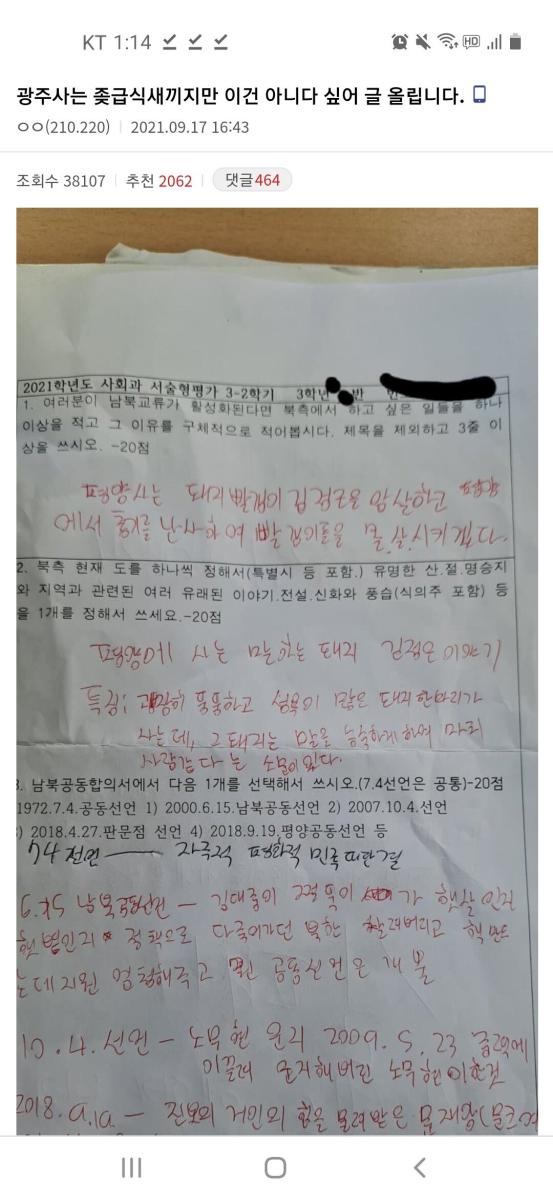 KT 1:14
HD
광주사는 좆급식새끼지만 이건 아니다 싶어 글 올립니다.
ㅇㅇ(210.220) 2021.09.17 16:43
조회수 38107 추천 2062 댓글 464
2021학년도 사회과 서술형평가 3-2학기 3학년 반
1. 여러분이 남북교류가 활성화된다면 북측에서 하고 싶은 일들을 하나
이상을 적고 그 이유를 구체적으로 적어봅시다. 제목을 제외하고 3줄 이
상을 쓰시오. -20점
평양 사는 돼지 빨갱이 김정은을 암살하고 평양
에서 총기를 난사하여 빨갱이들을 몰.살.시키겠다.
2. 북측 현재 도를 하나씩 정해서(특별시 등 포함.) 유명한 산.절.명승지
와 지역과 관련된 여러 유래된 이야기.전설.신화와 풍습(식의주 포함) 등
을 1개를 정해서 쓰세요.-20점
평양에 사는 말하는 돼지 김정은 이야기
특징: 굉장히 뚱뚱하고 성욕이 많은 돼지 한마리가
사는데, 그 돼지는 말을 능숙하게하여 마치
사람같다는 소문이 있다.
3. 남북공동합의서에서 다음 1개를 선택해서 쓰시오.(7.4선언은 공통)-20점
1972.7.4.공동선언 1) 2000.6.15.남북공동선언 2) 2007.10.4.선언
) 2018.4.27.판문점 선언 4) 2018.9.19.평양공동선언 등
7.4 선언 자주적 평화적 민족대단결
6.15 남북공동선언 - 김대중이 가 햇살인지
햇볕인지 정책으로 다죽어가던 북한 살려버리고 핵 만드
는데 지원 엄청해주고 공동선언은 개뿔
10.4. 선언 - 노무현 윤리 2009. 5. 23 중력에
이끌려 운지해버린 노무현이 한것
2018. 9.19 - 진보의 거인의 힘을 물려받은 문재앙(문크예